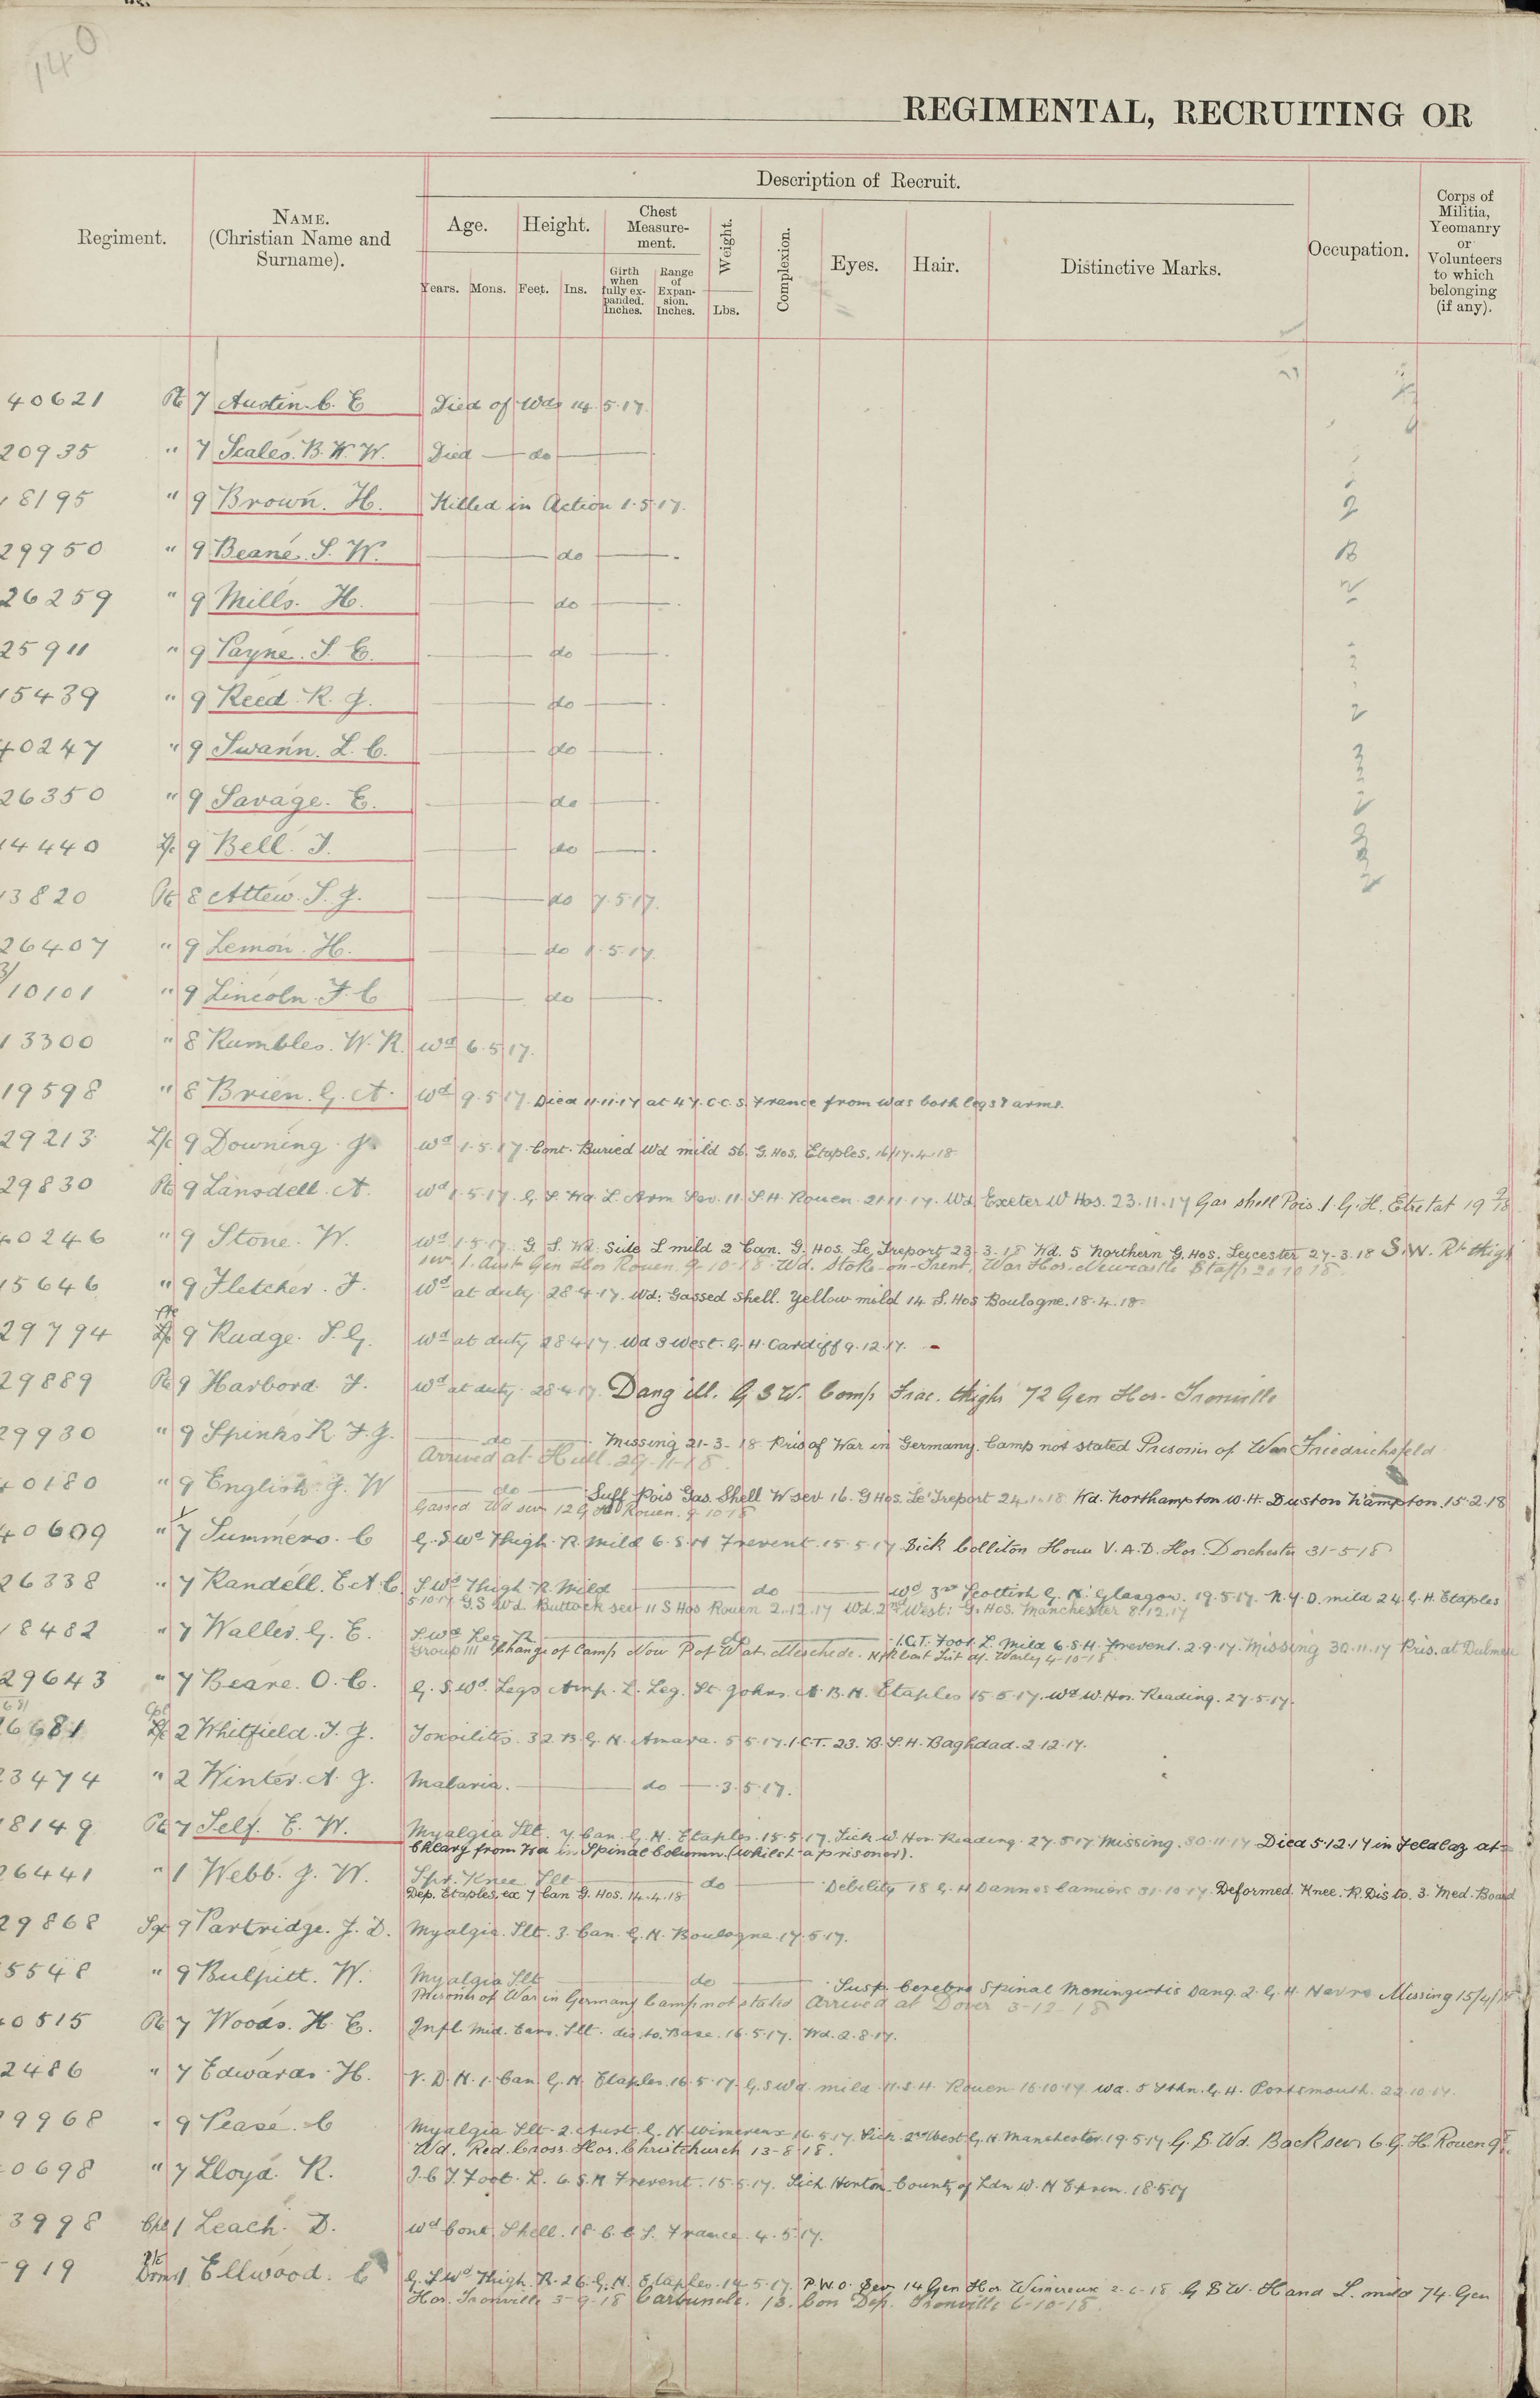 140
REGIMENTAL, RECRUITING OR
Regiment.
NAME.
(Christian Name and
Surname).
Description of Recruit.
Age.
Height.
Chest
Measure-
ment.
Weight.
Complexion.
Eyes.
Hair.
Distinctive Marks.
Occupation.
Corps of
Militia,
Yeomanry
or
Volunteers
to which
belonging
(if any).
Years. Mons. Feet. Ins.
Girth
when
fully ex-
panded.
Inches.
Range
of
Expan-
sion.
Inches.
Lbs.
40621 Pte 7 Austin. C. E Died of Wds 14.5.17.
20935 " 7 Scales. B. W. W. Died — do —
18195 " 9 Brown. H. Killed in Action 1.5.17.
29950 " 9 Beane. S. W. — do —
26259 " 9 Mills. H. — do —
25911 " 9 Payne. S. E. — do —
15439 " 9 Reed R. J. — do —
40247 " 9 Swann. L. C. — do —
26350 " 9 Savage. E. — do —
14440 L/c 9 Bell. J. — do —
13820 Pte 8 Attew. S. J. — do 7.5.17.
26407 " 9 Lemon. H. — do 1.5.17.
3/
10101 " 9 Lincoln. F. C — do —
13300 " 8 Rumbles. W. R. Wd 6.5.17.
19598 " 8 Brien. G. A. Wd 9.5.17. Died 11.11.17 at 47. C.C.S. France from Wds both legs & arms.
29213 L/c 9 Downing J. Wd 1.5.17. Cont. Buried Wd mild 56. G. Hos. Etaples. 16/17.4.18
29830 Pte 9 Lansdell. A. Wd 1.5.17. G. S. Wd. L. Arm Sev. 11. S. H. Rouen 21.11.17. Wd. Exeter W Hos. 23.11.17 Gas shell Pois. 1. G. H. Etretat 19
40246 " 9 Stone. W. Wd 1.5.17. G. S. Wd. Side L mild 2 Can. G. Hos. Le Treport 23.3.18 Wd. 5 Northern G. Hos. Leicester 27-3.18 S.W. Rt thigh
sev 1. Aust Gen Hos Rouen 9-10-18. Wd. Stoke-on-Trent, War Hos. Newcastle Staffs 20 10 18.
15646 " 9 Fletcher. F. Wd at duty 28.4.17. Wd: Gassed Shell. Yellow mild 14. S. Hos Boulogne. 18.4.18.
Pte
29794 9 Rudge. S. G. Wd at duty 28.4.17. Wd 3 West. G. H. Cardiff 9.12.17.
29889 Pte 9 Harbord F. Wd at duty 28.4.17. Dang ill. G S W. Comp Frac. thigh 72 Gen Hos. Trouville
29930 " 9 Spinks R. F. J. — do — Missing 21-3-18 Pris of War in Germany. Camp not stated Prisoner of War Friedrichsfeld
Arrived at Hull. 29-11-18.
40180 " 9 English. J. W — do — Suff Pois Gas. Shell W sev 16. G Hos. Le Treport 24.1.18 Wd. Northampton W. H. Duston N'ampton. 15.2.18
Gassed Wd sev 12 G. H. Rouen. 9-10-18
40609 " 7 Summers. C G. S. Wd Thigh. R. Mild 6. S. H Frevent. 15.5.17. Sick Colliton House V. A. D. Hos. Dorchester 31-5-18
26338 " 7 Randell. E. A. C. S. Wd Thigh. R. Mild — do — Wd 3rd Scottish G. H. Glasgow. 19.5.17. N. Y. D. mild 24 G. H. Etaples
5 10 17 G.S Wd. Buttock sev 11 S Hos Rouen 2.12.17 Wd. 2nd West: G. Hos. Manchester 8.12.17
18482 " 7 Waller. G. E. S. Wd Leg R — do — 1. C. T. Foot. L. Mild 6. S. H. Frevent. 2-9-17. Missing 30.11.17 Pris. at Dulmen
Group III Change of Camp Now P of W at Meschede.
29643 " 7 Beare. O. C. G. S. Wd. Legs Amp. L. Leg. St Johns. A. B. H. Etaples 15 5.17. Wd W. Hos. Reading. 27.5.17.
Cpl
16681 2 Whitfield. T. J. Tonsilitis. 32 B. G. H. Amara. 5.5.17. 1. C.T. 23. B. S. H. Baghdad. 2.12.17.
23474 " 2 Winter. A. J. Malaria. — do — 3.5.17.
18149 Pte 7 Self. E. W. Myalgia Slt. 7 Can. G. H. Etaples. 15.5.17. Sick W. Hos. Reading 27.5.17 Missing. 30.11.17 Died 5.12.17 in Feldlaz at
Clary from Wd in Spinal Column. (Whilst a prisoner).
26441 " 1 Webb. J. W. Spr. Knee Slt — do — Debility 18 G. H Dannes Camiers 31.10.17 Deformed. Knee. R. Dis to. 3. Med. Board
Dep. Etaples, ex 7 Can G. Hos. 14.4.18
29868 Sgt 9 Partridge. J. D. Myalgia. Slt. 3. Can. G. H. Boulogne 17.5.17.
5548 " 9 Bulpitt. W. Myalgia Slt — do — Susp. Cerebro Spinal Meningitis Dang. 2. G. H. Havre Missing 15/4/18
Prisoner of War in Germany Camp not stated Arrived at Dover 3-12-18
40515 Pte 7 Woods. H. E. Infl Mid. Ears. Slt. dis. to. Base. 16.5.17. Wd. 2.8.17.
2486 " 7 Edwards. H. V. D. H. 1. Can G. H Etaples. 16.5.17. G. S Wd. mild. 11. S. H. Rouen 16.10.17. Wd. 5 Sthn. G. H. Portsmouth. 22.10.17.
9968 " 9 Pease. C Myalgia Slt. 2. Aust. G. H Wimereux 16.5.17. Sick. 2nd West G. H Manchester. 19.5.17 G. S. Wd. Back sev 6 G. H. Rouen
Wd. Red. Cross Hos. Christchurch 13-8-18.
40698 " 7 Lloyd. R. I. C. T. Foot. L. 6. S. H Frevent. 15.5.17. Sick Horton County of Ldn W. H Epsom. 18.5.17
3998 Cpl 1 Leach. D. Wd Cont. Shell. 18. C. C. S. France. 4.5.17.
Pte
919 Drmr 1 Ellwood. C G. S. Wd Thigh. R. 26. G. H. Etaples. 14.5.17. P. U. O. Sev 14 Gen Hos Wimereux 2-6-18 G S W. Hand L. mild 74. Gen
Hos. Trouville 3-9-18 Carbuncle. 13. Con Dep. Trouville 6-10-18.